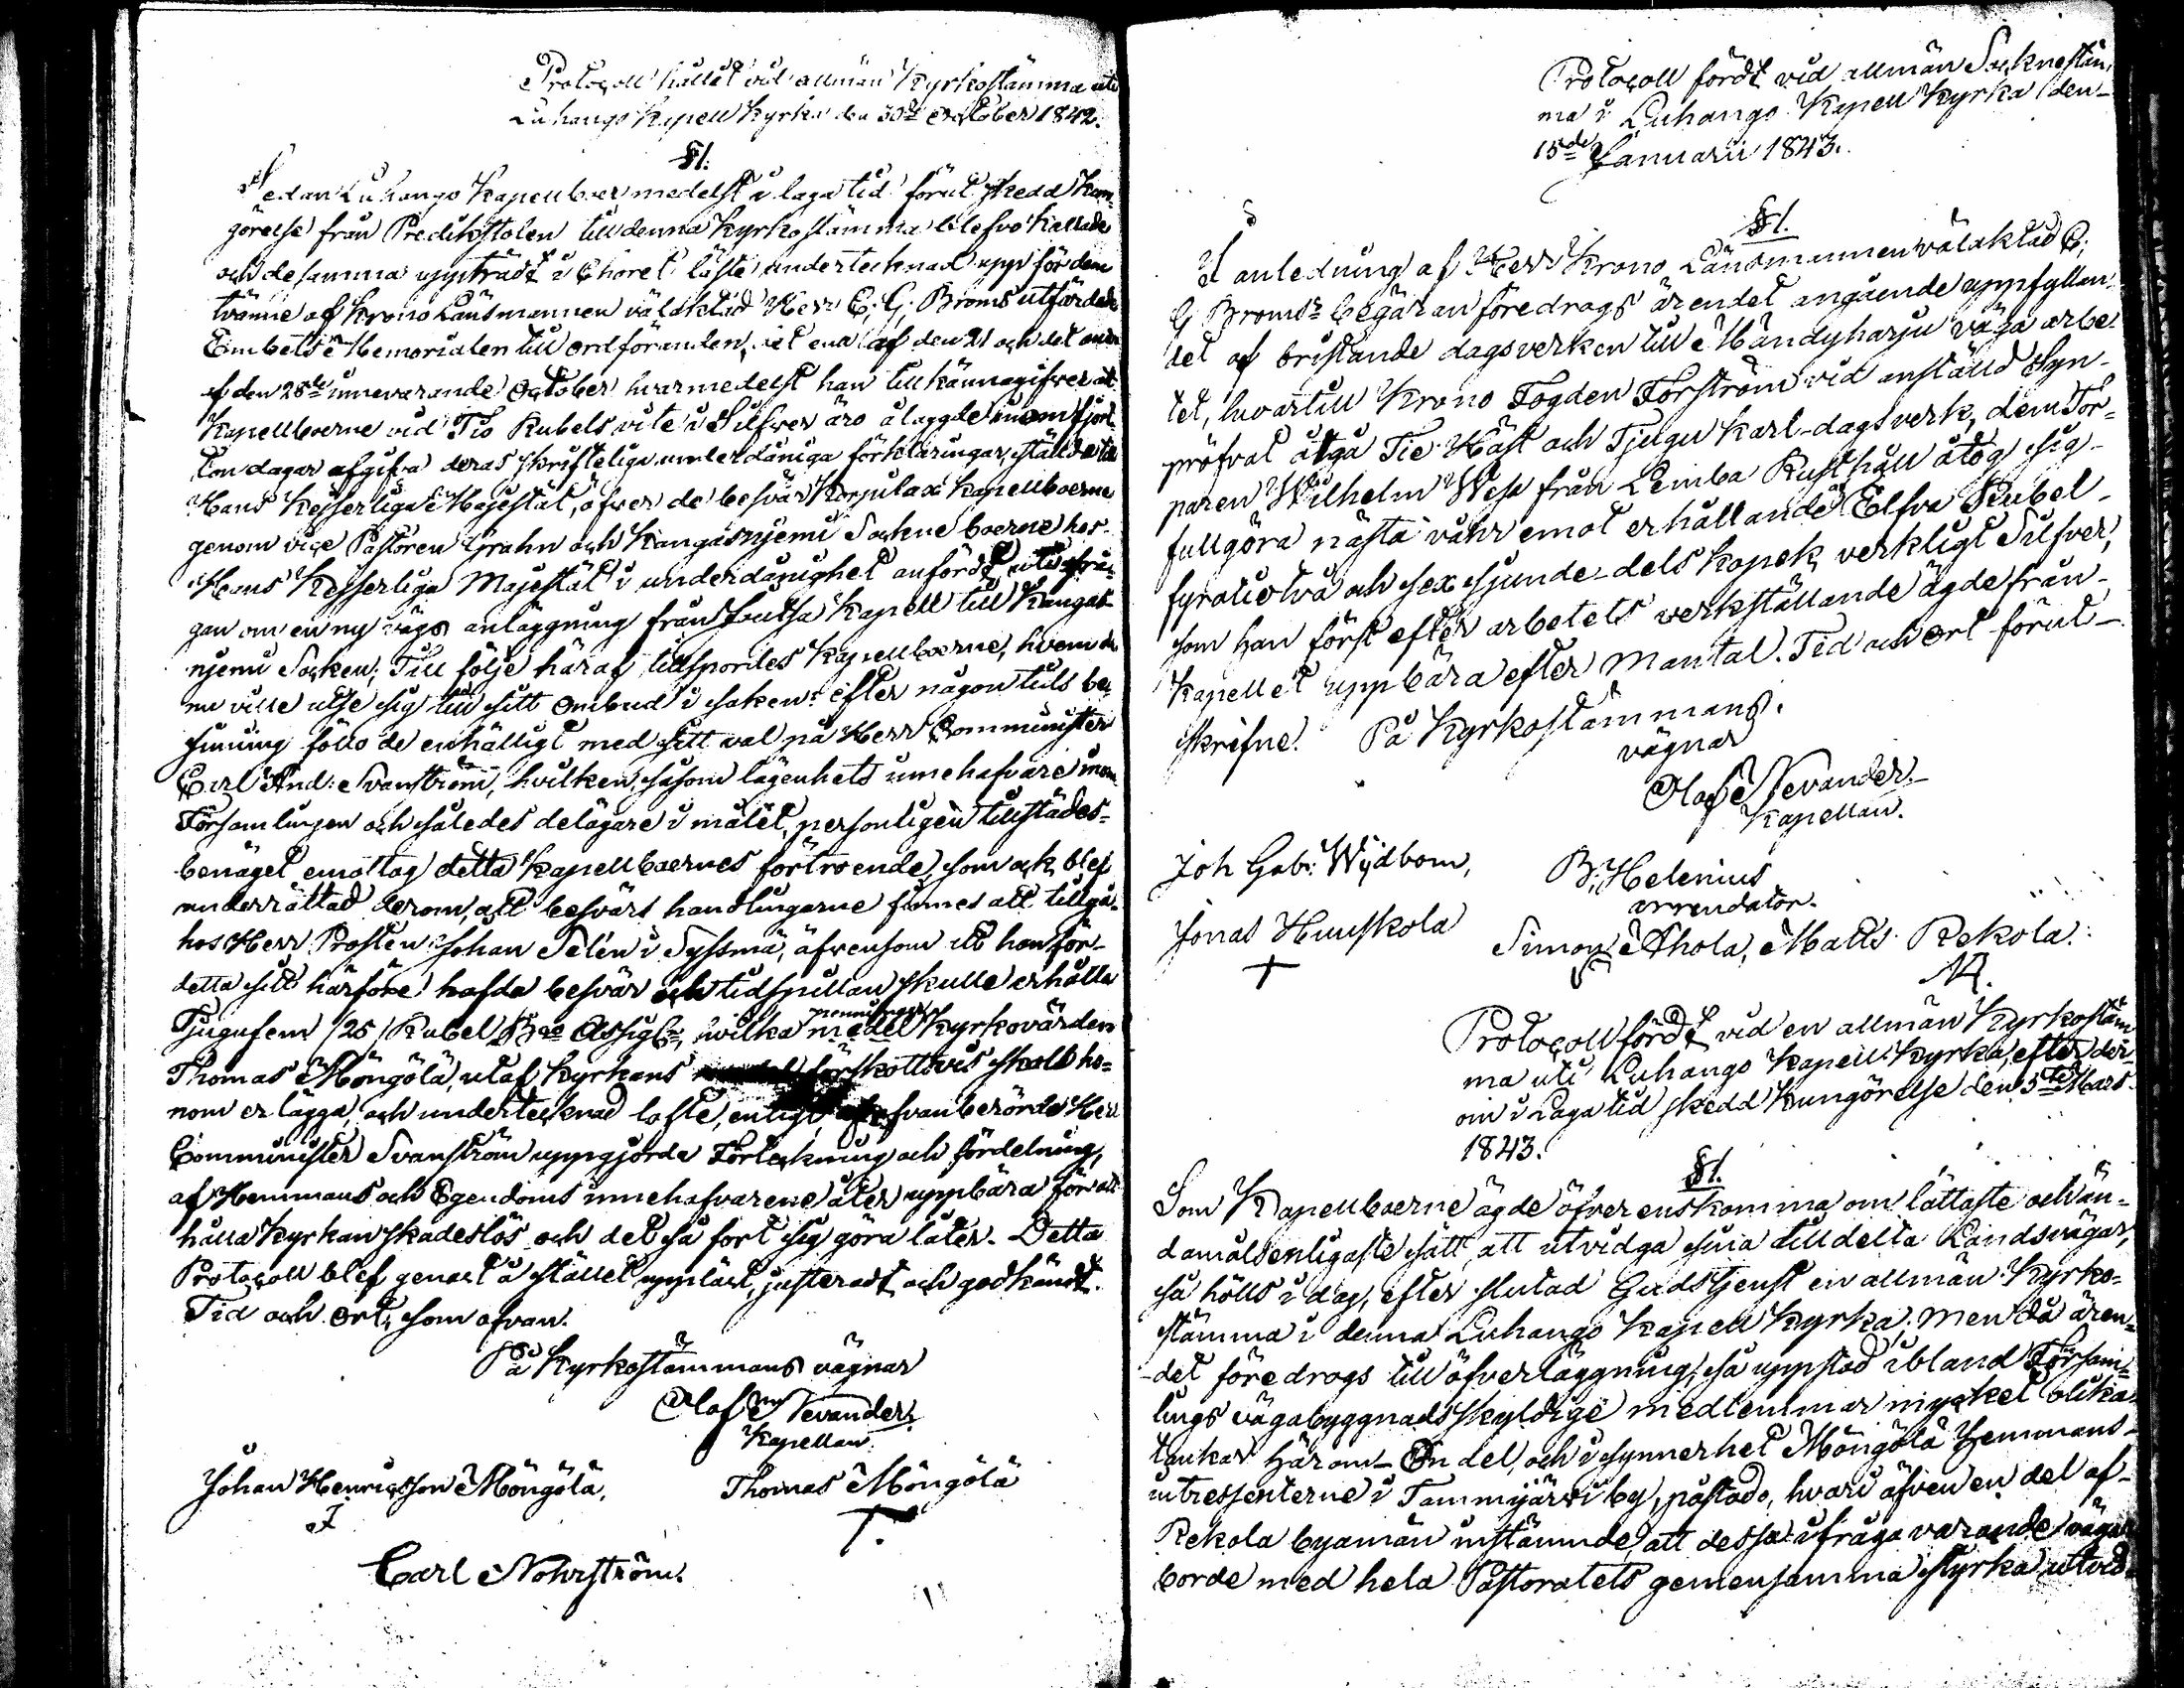 Protocoll hållit vid allmän Kyrkostämma uti
Luhango Kapell Kyrka den 30de October 1842.
§1.
Sedan Luhango Kapellboer medelst i laga tid förut skedd Kun-
görelse från Predikstolen till denna Kyrkostämma blefvo kallade
och desamma uppträdt i Choret läste undertecknad upp för dem
tvänne af Krono Länsmannen välaktad Herr C. G. Broms utfärdade
Embets Memorialen till ordföranden, det ena af den 21 och det andra
af den 28de innevarande October hvarmedelst han tillkännagifver at
Kapellboerne vid Tio Rubels vite i Silfver äro ålaggde inom fjor-
ton dagar afgifva deras skrifteliga underdåniga förklaringar, ställde till
Hans Kejserliga Majestät, öfver de besvär Korpilax Kapellboerne
genom vice Pastoren Grahn och Kangasnjemi Sockne boerne hos
Hans Kejserliga Majestät i underdånighet anfördt uti frå-
gan om en ny vägs anläggning från Joutsa Kapell till Kangas-
njemi Socken; Till följe häraf tillspordes Kapellboerne, hvem de
nu ville utse sig till sitt Ombud i saken: efter någon tids be-
sinning föllo de enhälligt med sitt val på Herr Comminister
Carl And: Svanström, hvilken, såsom lägenhets innehafvare inom
Församlingen och således delägare i målet, personligen tillstädes-
benäget emottog detta Kapellboernes förtroende, som ock blef
underrättad derom, att besvärs handlingarne finnes att tillgå
hos Herr Prosten Johan Selén i Sysmä, äfvensom att han för
detta sitt härföre hafda besvär och tidspillan skulle erhålla
Tjugufem /25/ Rubel Bco Assigr, hvilka penningar Kyrkovärden
Thomas Möngölä, utaf Kyrkans förskottsvis skall ho-
nom erlägga, och undertecknad lofte, enligt ofvanberörde Herr
Comminister Svanström uppgjorde Förteckning och fördelning,
af Hemmans och Egendoms innehafvarene åter uppbära för att
hålla Kyrkan skadeslös och det så fort sig göra låter. Detta
Protocoll blef genast å stället uppläst, justeradt och godkändt.
Tid och Ort, som ofvan.
På Kyrkostämmans vägnar
Olof Nevander.
Kapellan.
Johan Henricsson Möngölä, Thomas Möngölä
Carl Nohrström.
Protocoll fördt vid allmän Socknestäm-
ma i Luhango Kapell Kyrka den
15de Januarii 1843.
§1.
I anledning af Herr Krono Länsmannen välaktad C.
G Broms begäran föredrogs ärendet angående uppfyllan-
det af bristande dagsverken till Mändyharju väga arbe-
tet, hvartill Krono Fogden Forström vid anställd Syn
pröfvat åtgå Tie Häst och Tjugu Karl-dagsverk, dem Tor-
paren Wilhelm Wesa från Lemba Rusthåll åtog sig
fullgöra nästa våhr emot erhållande Elfva Rubel
fyratiotvå och sex sjunde-dels kopek verkligt Silfver,
som han först efter arbetets verkställande ägde från
Kapellet uppbära efter Mantal. Tid och Ort förut
skrifne. På Kyrkostämmans
vägnar
Olof Nevander.
Kapellan.
Joh Gab: Wydbom, B. Helenius
arrendator.
Jonas Huuskola Simon Ahola, Matts Rekola.
Protocoll fördt vid en allmän Kyrkostäm-
ma uti Luhango Kapell Kyrka, efter der-
om i Laga tid skedd Kungörelse den 5te Mars
1843.
§1.
Som Kapellboerne ägde öfverenskomma om lättaste och än-
damålsenligaste sätt, att utvidga sina till delta Landsvägar,
så hölls i dag, efter slutad Gudstjenst en allmän Kyrko-
stämma i denna Luhango Kapell Kyrka. Men då ären-
det föredrogs till öfverläggning, så uppstod ibland Försam-
lings vägabyggnadsskyldige medlemmar mycket olika
tankar härom. En del, och i synnerhet Möngölä Hemmans
intressenterne i Tammijärvi by, påstodo, hvari äfven en del af
Rekola byamän instämnde, att dessa i fråga varande vägar
borde med hela Pastoratets gemensamma styrka utvid-